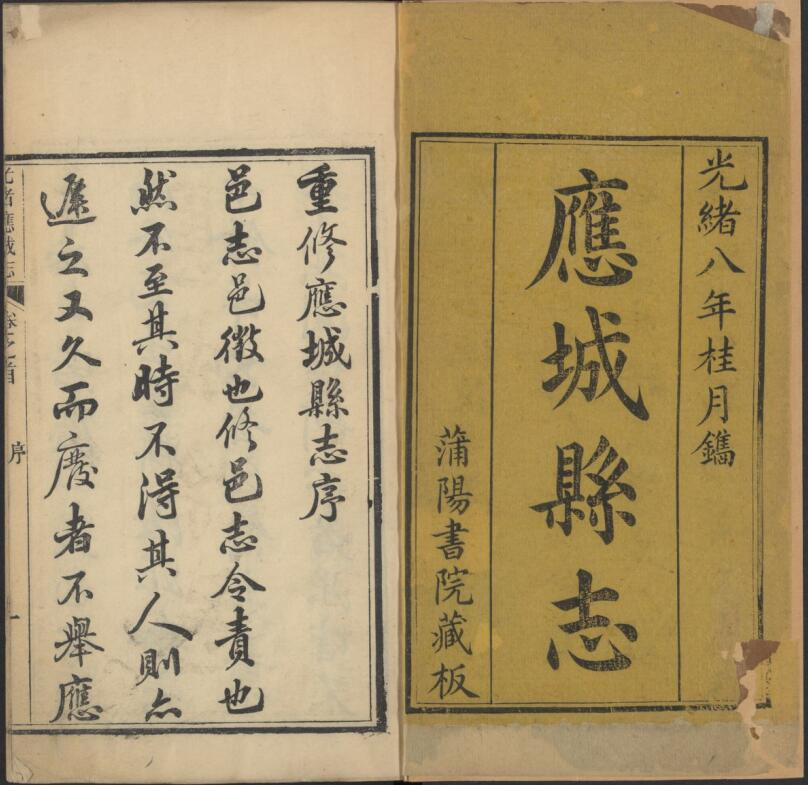 光緒八年桂月鐫
應城縣志
蒲陽書院藏板
重修應城縣志序
邑志邑徵也修邑志令責也
然不至其時不得其人則亦
遲之又久而廢者不舉應
光緒應城志 卷之首 序 一